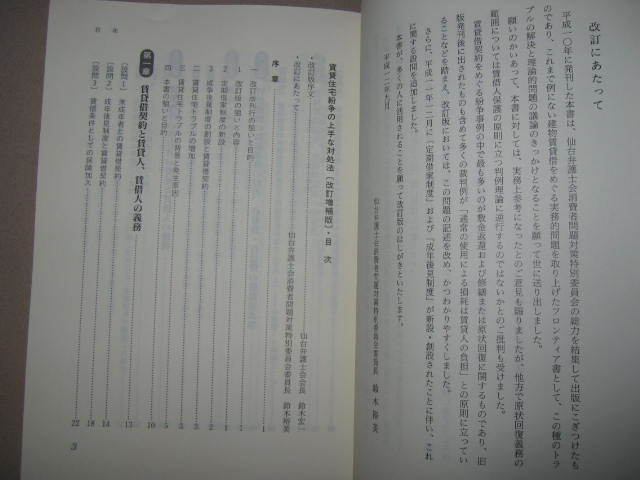 改訂にあたって
平成一〇年に発刊した本書は、仙台弁護士会消費者問題対策特別委員会の総力を結集して出版にこぎつけたも
のであり、これまで例にない建物賃貸借をめぐる実務的問題を取り上げたフロンティア書として、この種のトラ
ブルの解決と理論的問題の議論のきっかけとなることを願って世に送り出しました。
願いのかいあって、本書に対しては、実務上参考になったとのご意見も賜りましたが、他方で原状回復義務の
範囲については賃借人保護の原則に立つ判例理論に逆行するのではないかとのご批判も受けました。
賃貸借契約をめぐる紛争事例の中で最も多いのが敷金返還および修繕または原状回復に関するものであり、旧
版発刊後に出されたものも含めて多くの裁判例が「通常の使用による損耗は賃貸人の負担」との原則に立ってい
ることなどを踏まえ、改訂版においては、この問題の記述を改め、かつわかりやすくしました。
さらに、平成一一年一二月に「定期借家制度」および「成年後見制度」が新設・創設されたことに伴い、これ
に関する設問を追加しました。
本書が、多くの人に活用されることを願って改訂版のはしがきといたします。
平成一二年九月
仙台弁護士会消費者問題対策特別委員会委員長 鈴木裕美
目次
賃貸住宅紛争の上手な対処法〔改訂増補版〕・目 次
・改訂版序文 仙台弁護士会会長 鈴木宏一
・改訂にあたって 仙台弁護士会消費者問題対策特別委員会委員長 鈴木裕美
序章 1
一 改訂版執行の狙いと目的 1
1 改訂版の狙いと内容 1
2 定期借家制度の新設 2
3 成年後見制度の創設と賃貸借契約 2
二 賃貸住宅トラブルの増加 3
三 賃貸住宅トラブルの背景と発生原因 5
四 本書の狙いと目的 5
第一章 賃貸借契約と賃貸人、賃借人の義務 10
〔設問1〕 未成年者との賃貸借契約 13
〔設問2〕 成年後見制度と賃貸借契約 14
〔設問3〕 賃借条件としての保険加入 18
22
3